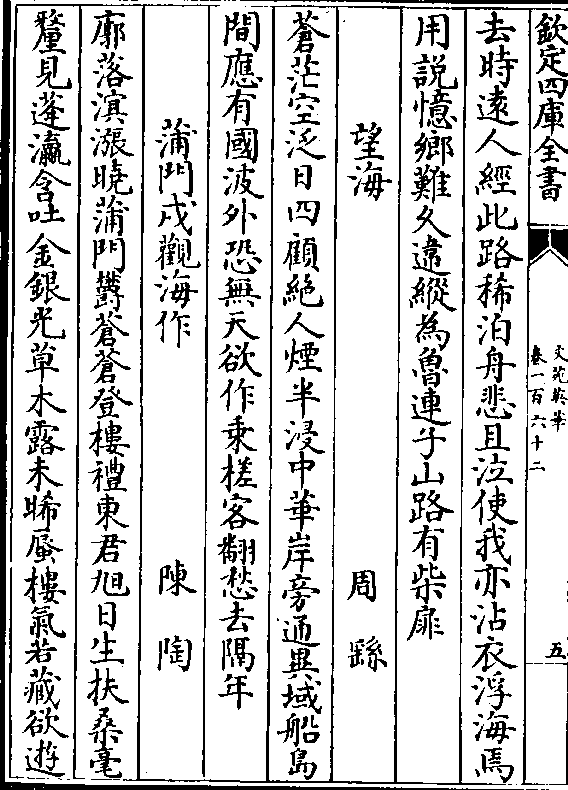 欽定四庫全書
文苑英華
卷一百六十二
五
去時遠人經此路稀泊舟悲且泣使我亦沾衣浮海焉
用說憶鄉難久違縱為魯連子山路有柴扉
望海
周繇
蒼茫空泛日四顧絶人煙半浸中華岸旁通異域船島
間應有國波外恐無天欲作乘槎客翻愁去隔年
蒲門戍觀海作
陳陶
廓落溟漲曉蒲門鬱蒼蒼登樓禮東君旭日生扶桑毫
釐見蓬瀛含吐金銀光草木露未晞蜃樓氣若藏欲遊